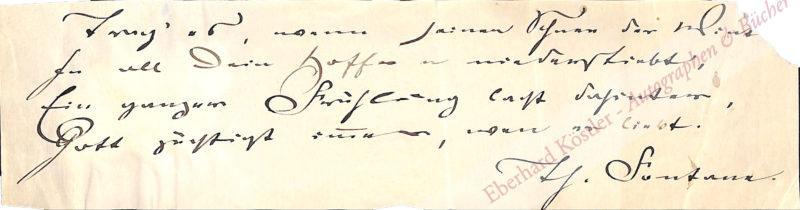 Trag' es, wenn seinen Schnee der Wint
In all Dein Hoffen niederstiebt,
Ein ganzer Frühling lacht dahinter,
Gott züchtigt immer, wen er liebt.
Th. Fontane.
Eberhard Köstler Autographen & Bücher